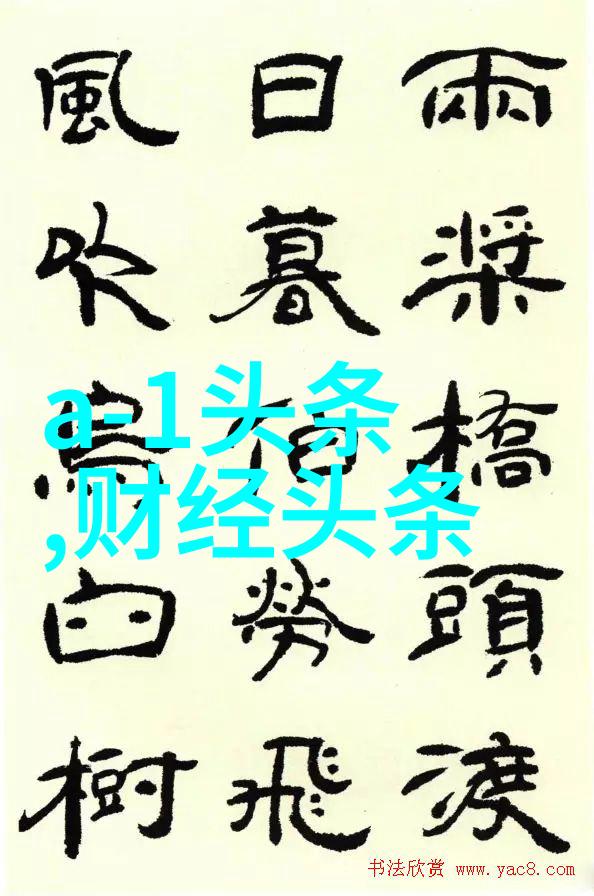 兩槳橋頭渡
日暮伯勞飛
風吹烏臼樹
a-1头条
,财经头条
书法欣赏 www.yac8.com